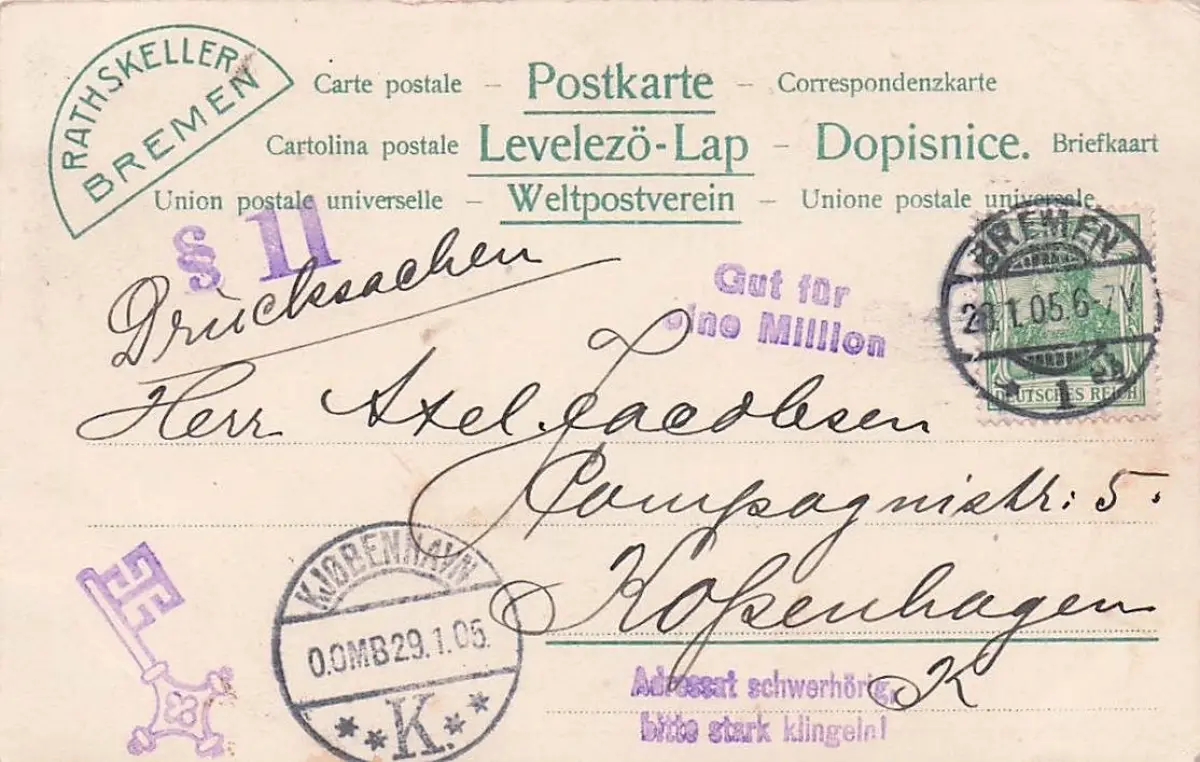 RATHSKELLER
BREMEN
Carte postale – Postkarte – Correspondenzkarte
Cartolina postale Levelezö-Lap – Dopisnice. Briefkaart
Union postale universelle – Weltpostverein – Unione postale universale
§ 11
Drucksachen
Gut für
eine Million
BREMEN
1.05.6-7V.
* 1
DEUTSCHES REICH
Herr Axel Jacobsen
Compagnistr: 5.
Kopenhagen
K
KJØBENHAVN
0.0MB29.1.05.
**K.**
Adressat schwerhörig,
bitte stark klingeln!